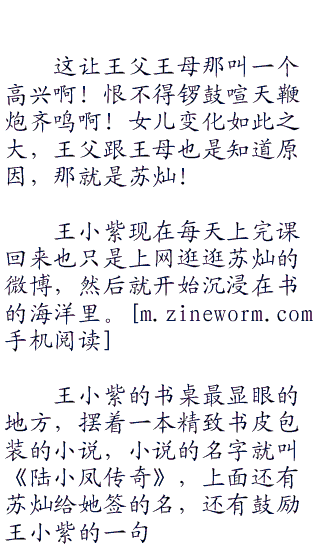 这让王父王母那叫一个
高兴啊！恨不得锣鼓喧天鞭
炮齐鸣啊！女儿变化如此之
大，王父跟王母也是知道原
因，那就是苏灿！
王小紫现在每天上完课
回来也只是上网逛逛苏灿的
微博，然后就开始沉浸在书
的海洋里。[m.zineworm.com
手机阅读]
王小紫的书桌最显眼的
地方，摆着一本精致书皮包
装的小说，小说的名字就叫
《陆小凤传奇》，上面还有
苏灿给她签的名，还有鼓励
王小紫的一句